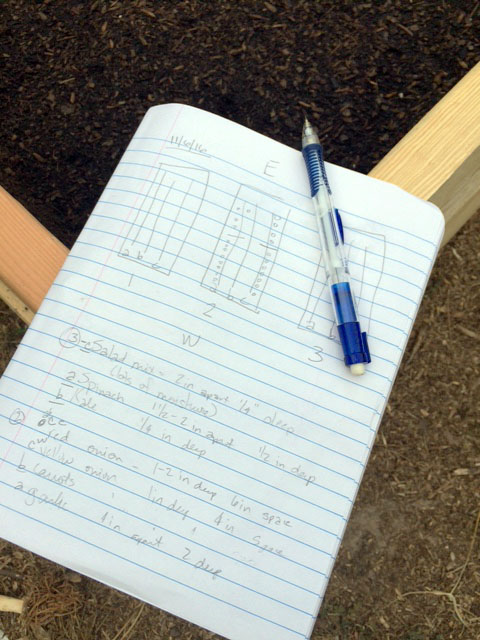 11/6/16
E
a b c
1
2
b c
a
3
W
③ c Salad mix - 2 in apart 1/4" deep
(lots of moisture)
a Spinach 1 1/2 - 2 in apart 1/2 in deep
b Kale 1/2 in deep
②
red onion - 1-2 in deep 6 in space
yellow onion " 1 in deep, 4 in space
b carrots
a garlic 4 in apart 2 deep